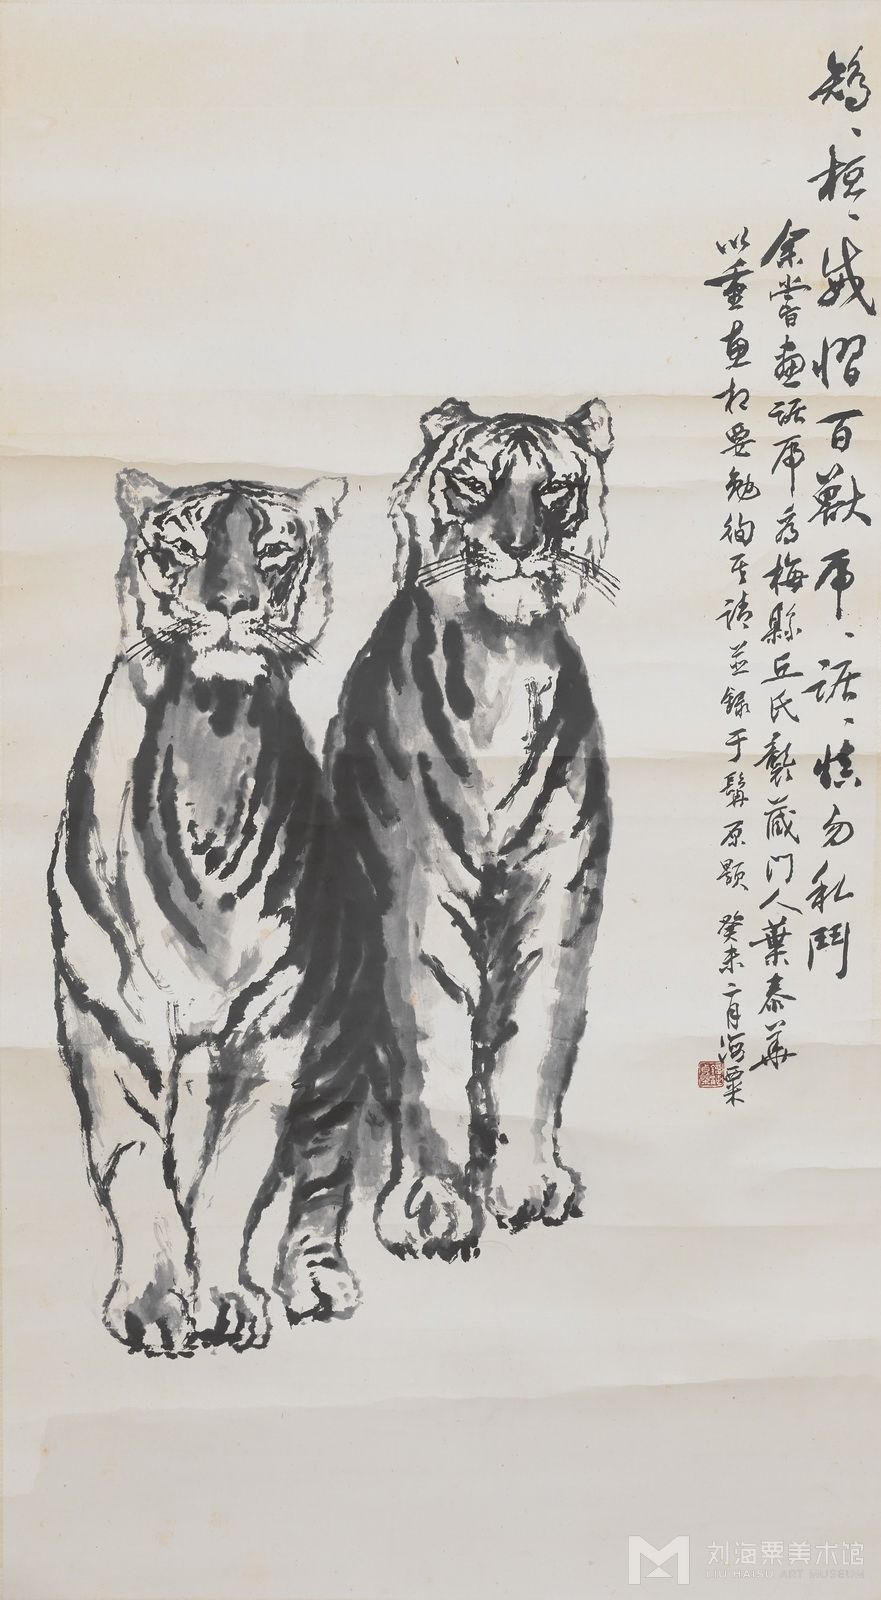 矯、桓、威慴百獸虎、踞、慎勿私鬥
余嘗畫踞虎為梅縣丘氏藏門人葉泰華
以重直相要勉徇其請並錄于鬅原題 癸未二月海粟
刘海粟美术馆
LIU HAISU ART MUSEUM